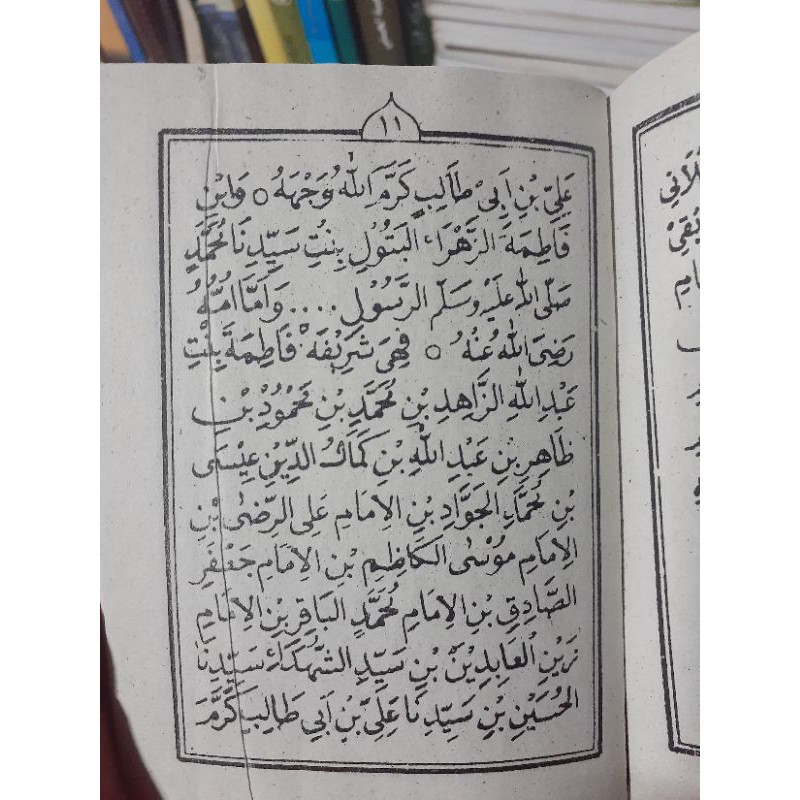 ١١
عَلِيِّ بْنِ اَبِيْ طَالِبٍ كَرَّمَ اللهُ وَجْهَهُ ○ وَابْنِ
فَاطِمَةَ الزَّهْرَاءِ البَتُوْلِ بِنْتِ سَيِّدِنَا مُحَمَّدٍ
صَلَّى اللهُ عَلَيْهِ وَسَلَّمَ الرَّسُوْلِ .... وَاَمَّا اُمُّهُ
رَضِيَ اللهُ عَنْهُ ○ فَهِيَ شَرِيْفَةْ فَاطِمَةَ بِنْتِ
عَبْدِ اللهِ الزَّاهِدِ بْنِ مُحَمَّدِ بْنِ مَحْمُوْدِ بْنِ
طَاهِرِ بْنِ عَبْدِ اللهِ بْنِ كَمَالُ الدِّيْنِ عِيْسَى
بْنِ مُحَمَّدِ الجَوَّادِ بْنِ الاِمَامِ عَلِى الرِّضَى بْنِ
الاِمَامِ مُوْسَى الكَاظِمِ بْنِ الاِمَامِ جَعْفَرِ
الصَّادِقِ بْنِ الاِمَامِ مُحَمَّدٍ البَاقِرِ بْنِ الاِمَامِ
زَيْنِ العَابِدِيْنَ بْنِ سَيِّدِ الشُّهَدَاءِ سَيِّدِنَا
الحُسَيْنِ بْنِ سَيِّدِنَا عَلِيِّ بْنِ اَبِي طَالِبٍ كَرَّمَ